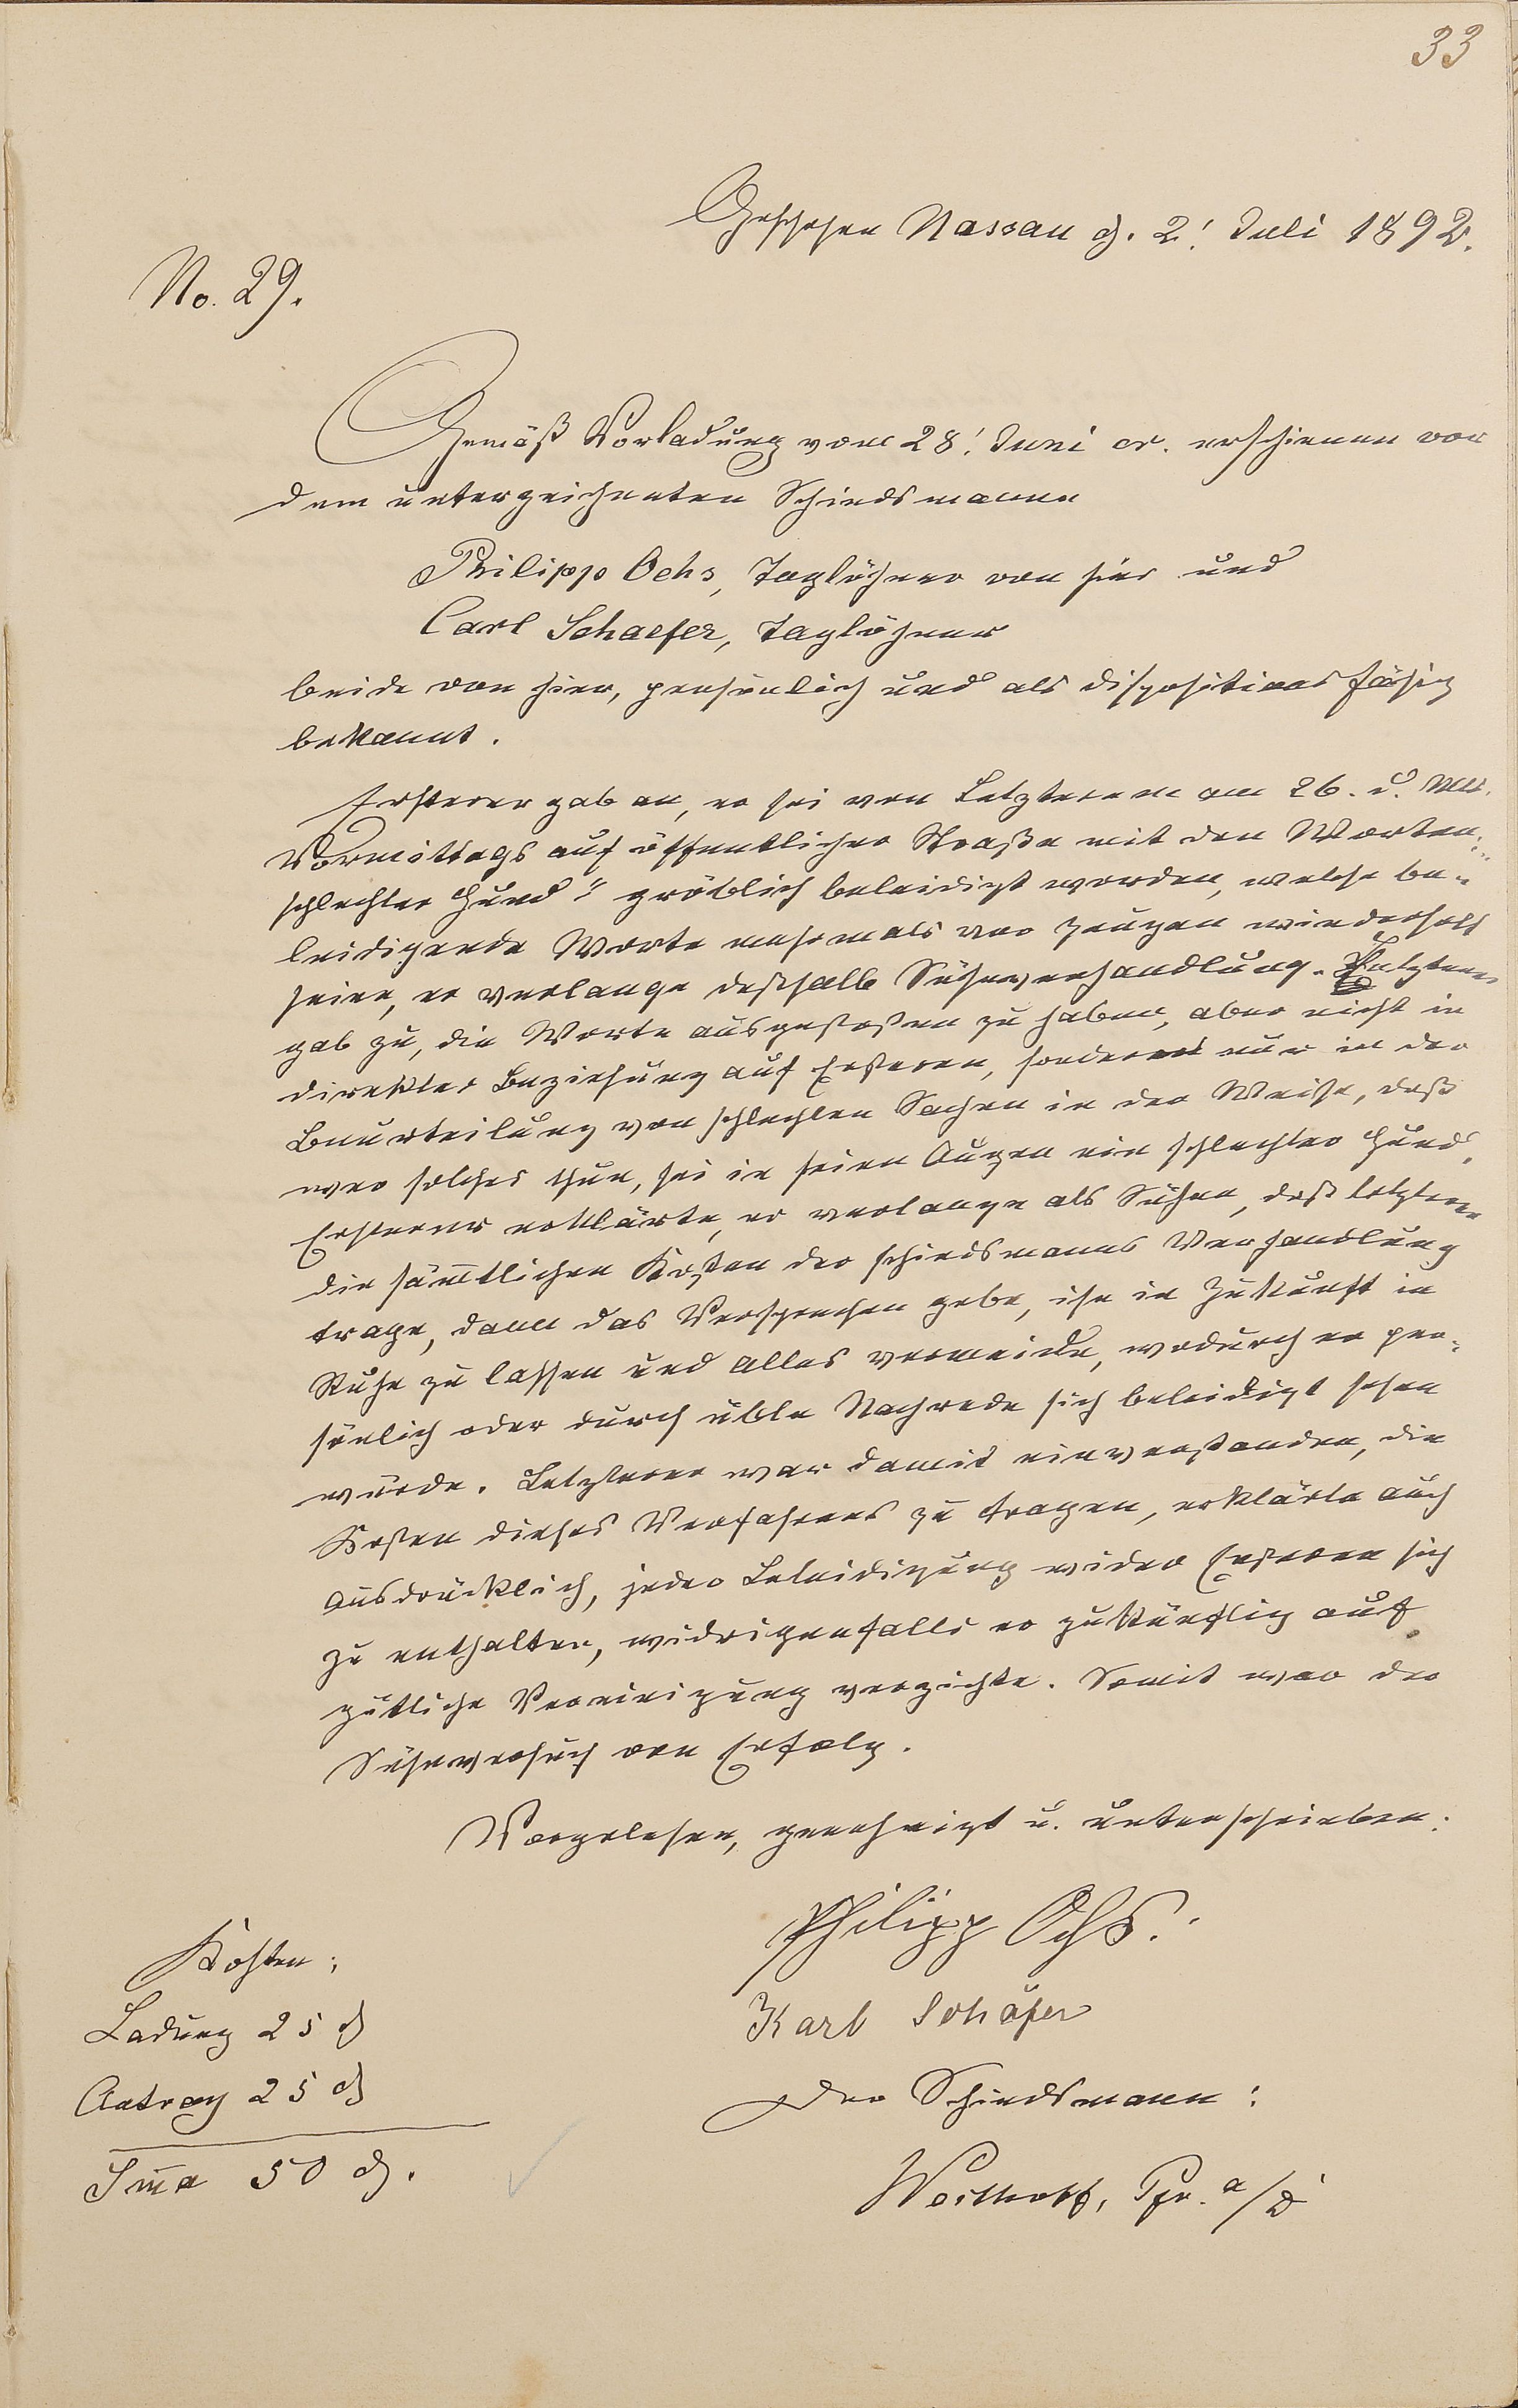 33
Geschehen Nassau d. 2! Juli 1892.
No. 29.
Gemäß Vorladung vom 28! Juni cr. erschienen vor
dem unterzeichneten Schiedsmanne
Philipp Ochs, Taglöhner von hier und
Carl Schaefer, Taglöhner
beide von hier, persönlich und als dispositionsfähig
bekannt.
Ersterer gab an, er sei von Letzterem am 26. v. Mts.
Vormittags auf öffentlicher Straße mit den Worten: „
schlechter Hund“ gröblich beleidigt worden, welche be-
leidigende Worte mehrmals vor Zeugen wiederholt
seien, er verlange deßhalb Sühneverhandlung. Letzterer
gab zu, die Worte ausgestoßen zu haben, aber nicht in
direkter Beziehung auf Ersteren, sondern nur in der
Beurteilung von schlechten Sachen in der Weise, daß
wer solches thue, sei in seinen Augen ein schlechter Hund.
Ersterer erklärte, er verlange als Sühne, daß letzterer
die sämtlichen Kosten der schiedsmanns Verhandlung
trage, dann das Versprechen gebe, ihn in Zukunft in
Ruhe zu lassen und alles vermeide, wodurch er per-
sönlich oder durch üble Nachrede sich beleidigt sehen
würde. Letzterer war damit einverstanden, die
Kosten dieses Verfahrens zu tragen, erklärte auch
ausdrücklich, jeder Beleidigung wider Ersteren sich
zu enthalten, widrigenfalls er zukünftig auf
gütliche Vereinigung verzichte. Somit war der
Sühneversuch von Erfolg.
Vorgelesen, genehmigt u. unterschrieben.
Philipp Ochs.
Karl Schäfer
Der Schiedsmann:
Pfr. a/D
Kosten:
Ladung 25 ₰
Antrag 25 ₰
Sma 50 ₰.